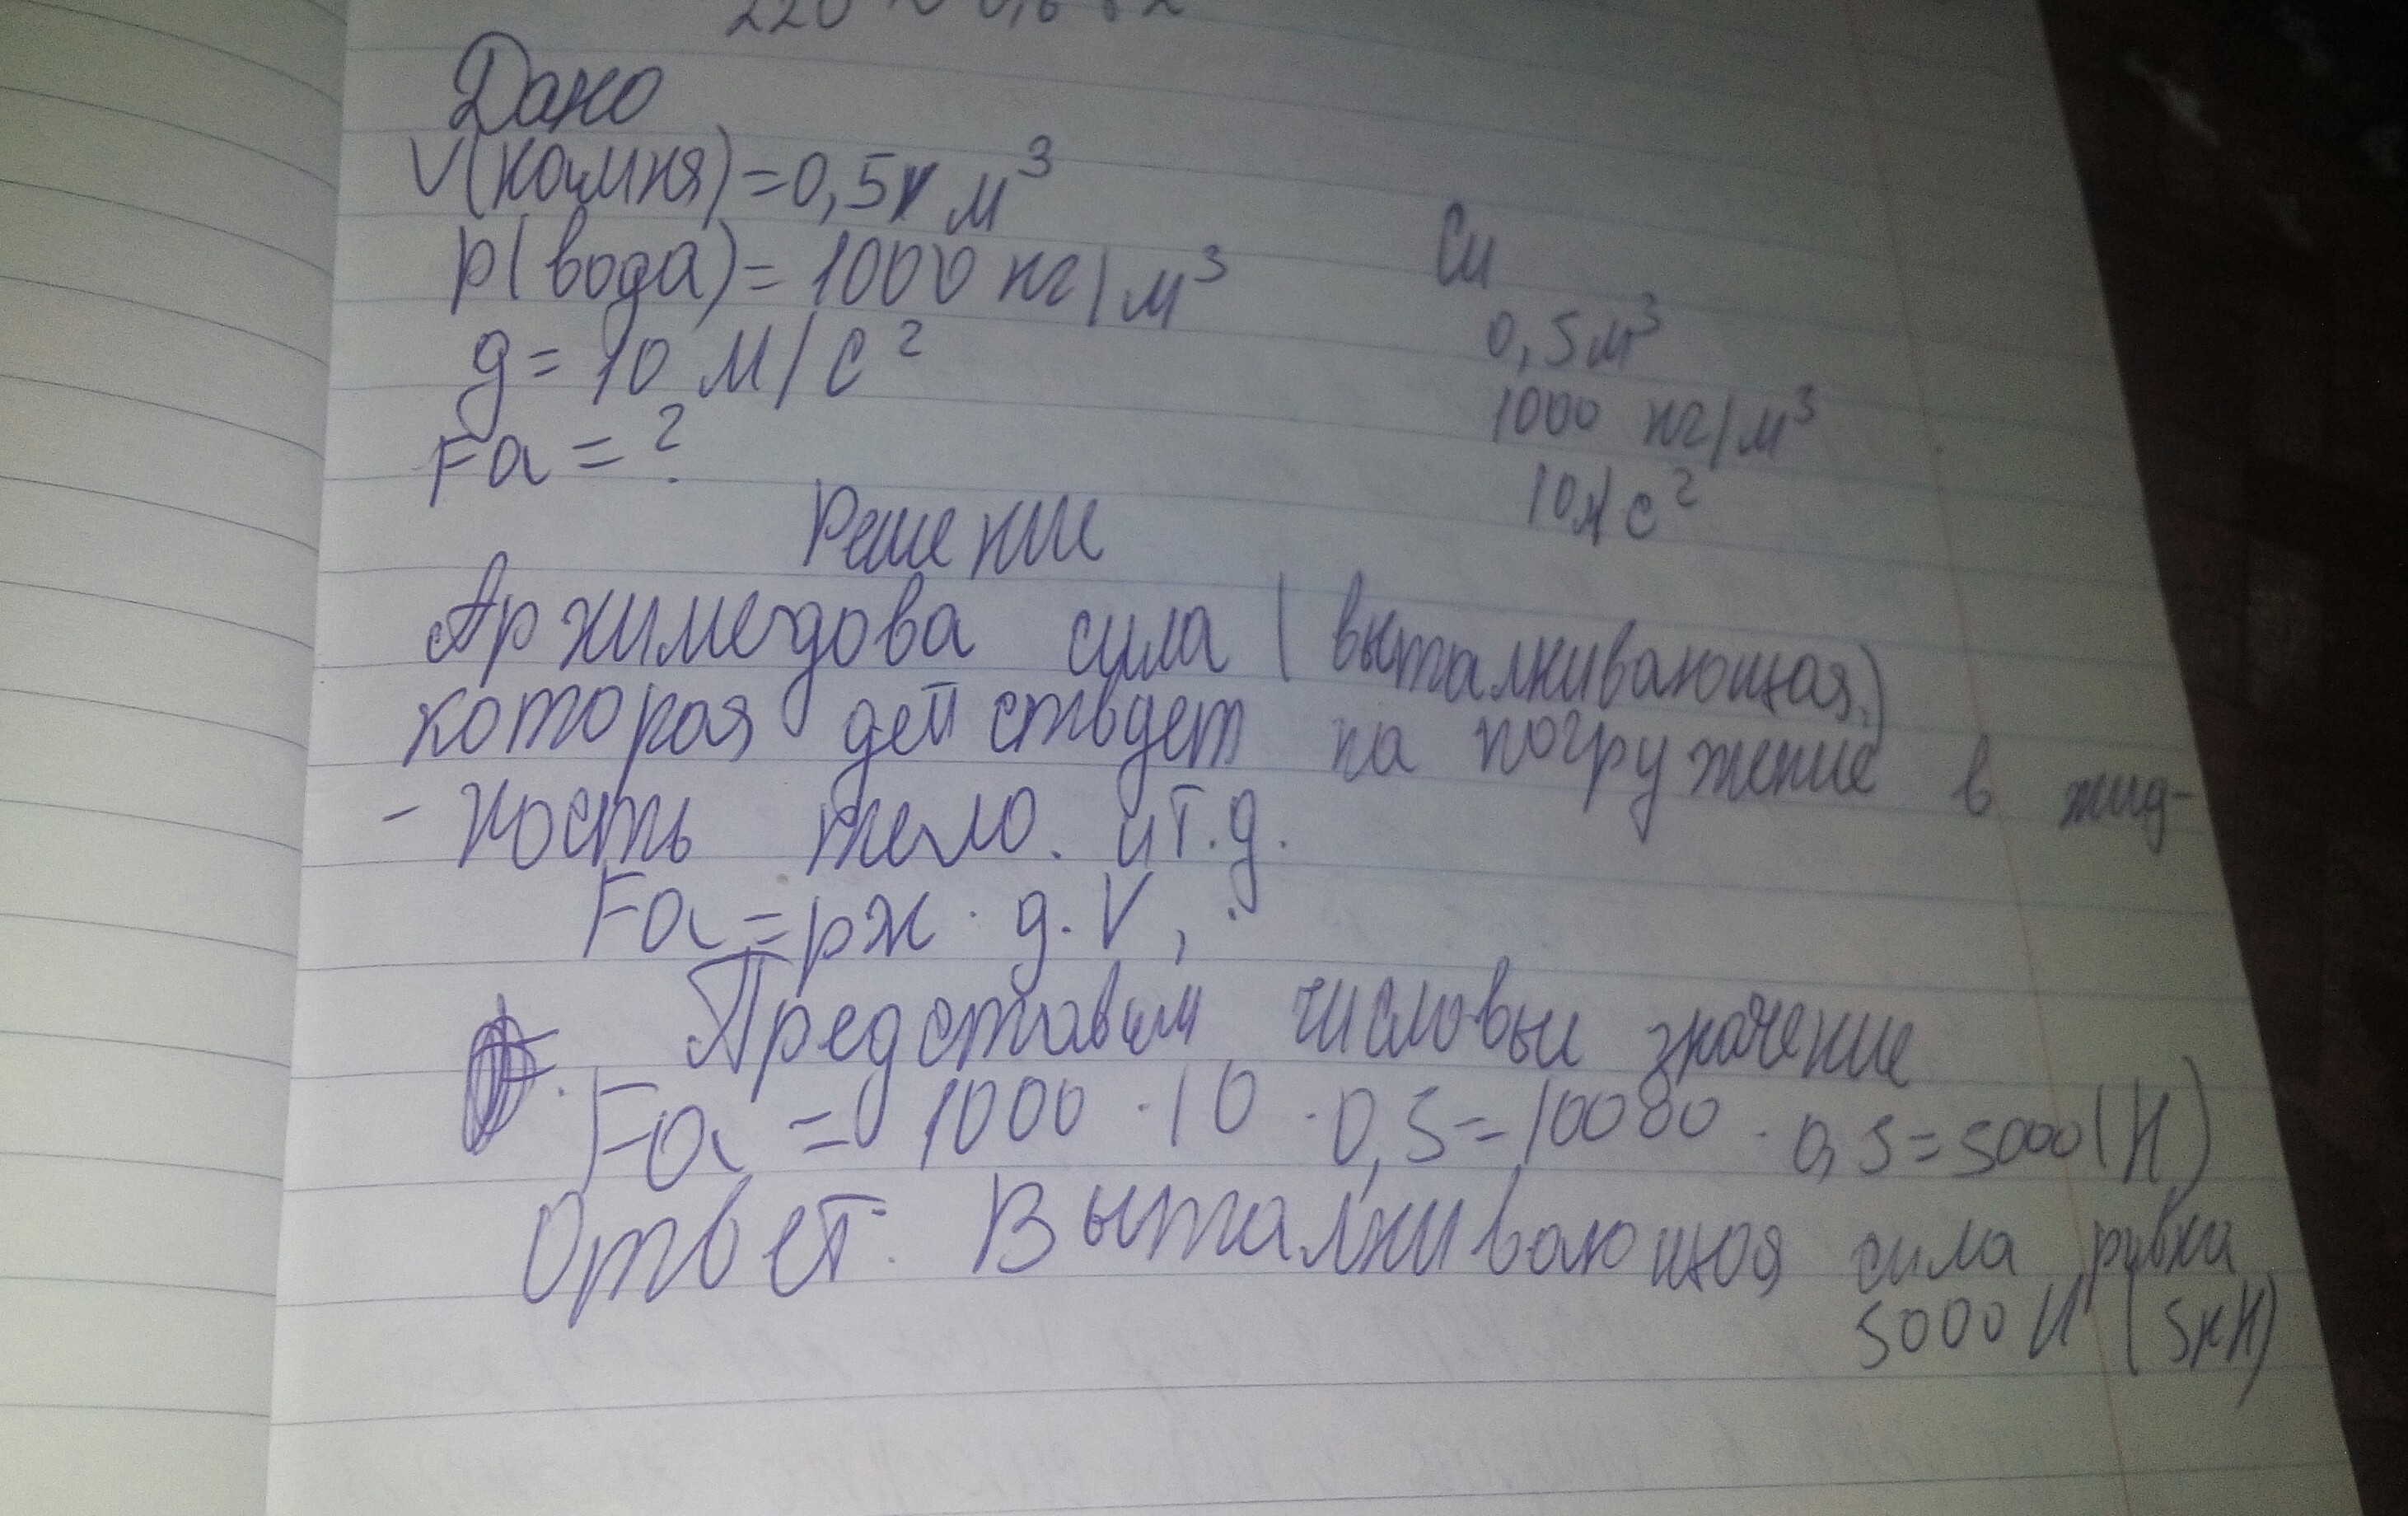 Дано
V(камня)=0,5 м³
р(вода)=1000 кг/м³
g=10 м/с²
Fa=?
Си
0,5м³
1000 кг/м³
10м/с²
Решение
Архимедова сила (выталкивающая)
которая действует на погружение в жид-
-кость тело. и т.д.
Fa=рж · g · V,
Представим числовые значение
Fa = 1000 · 10 · 0,5=10000 · 0,5=5000(Н)
Ответ: Выталкивающая сила
5000 Н (5кН)